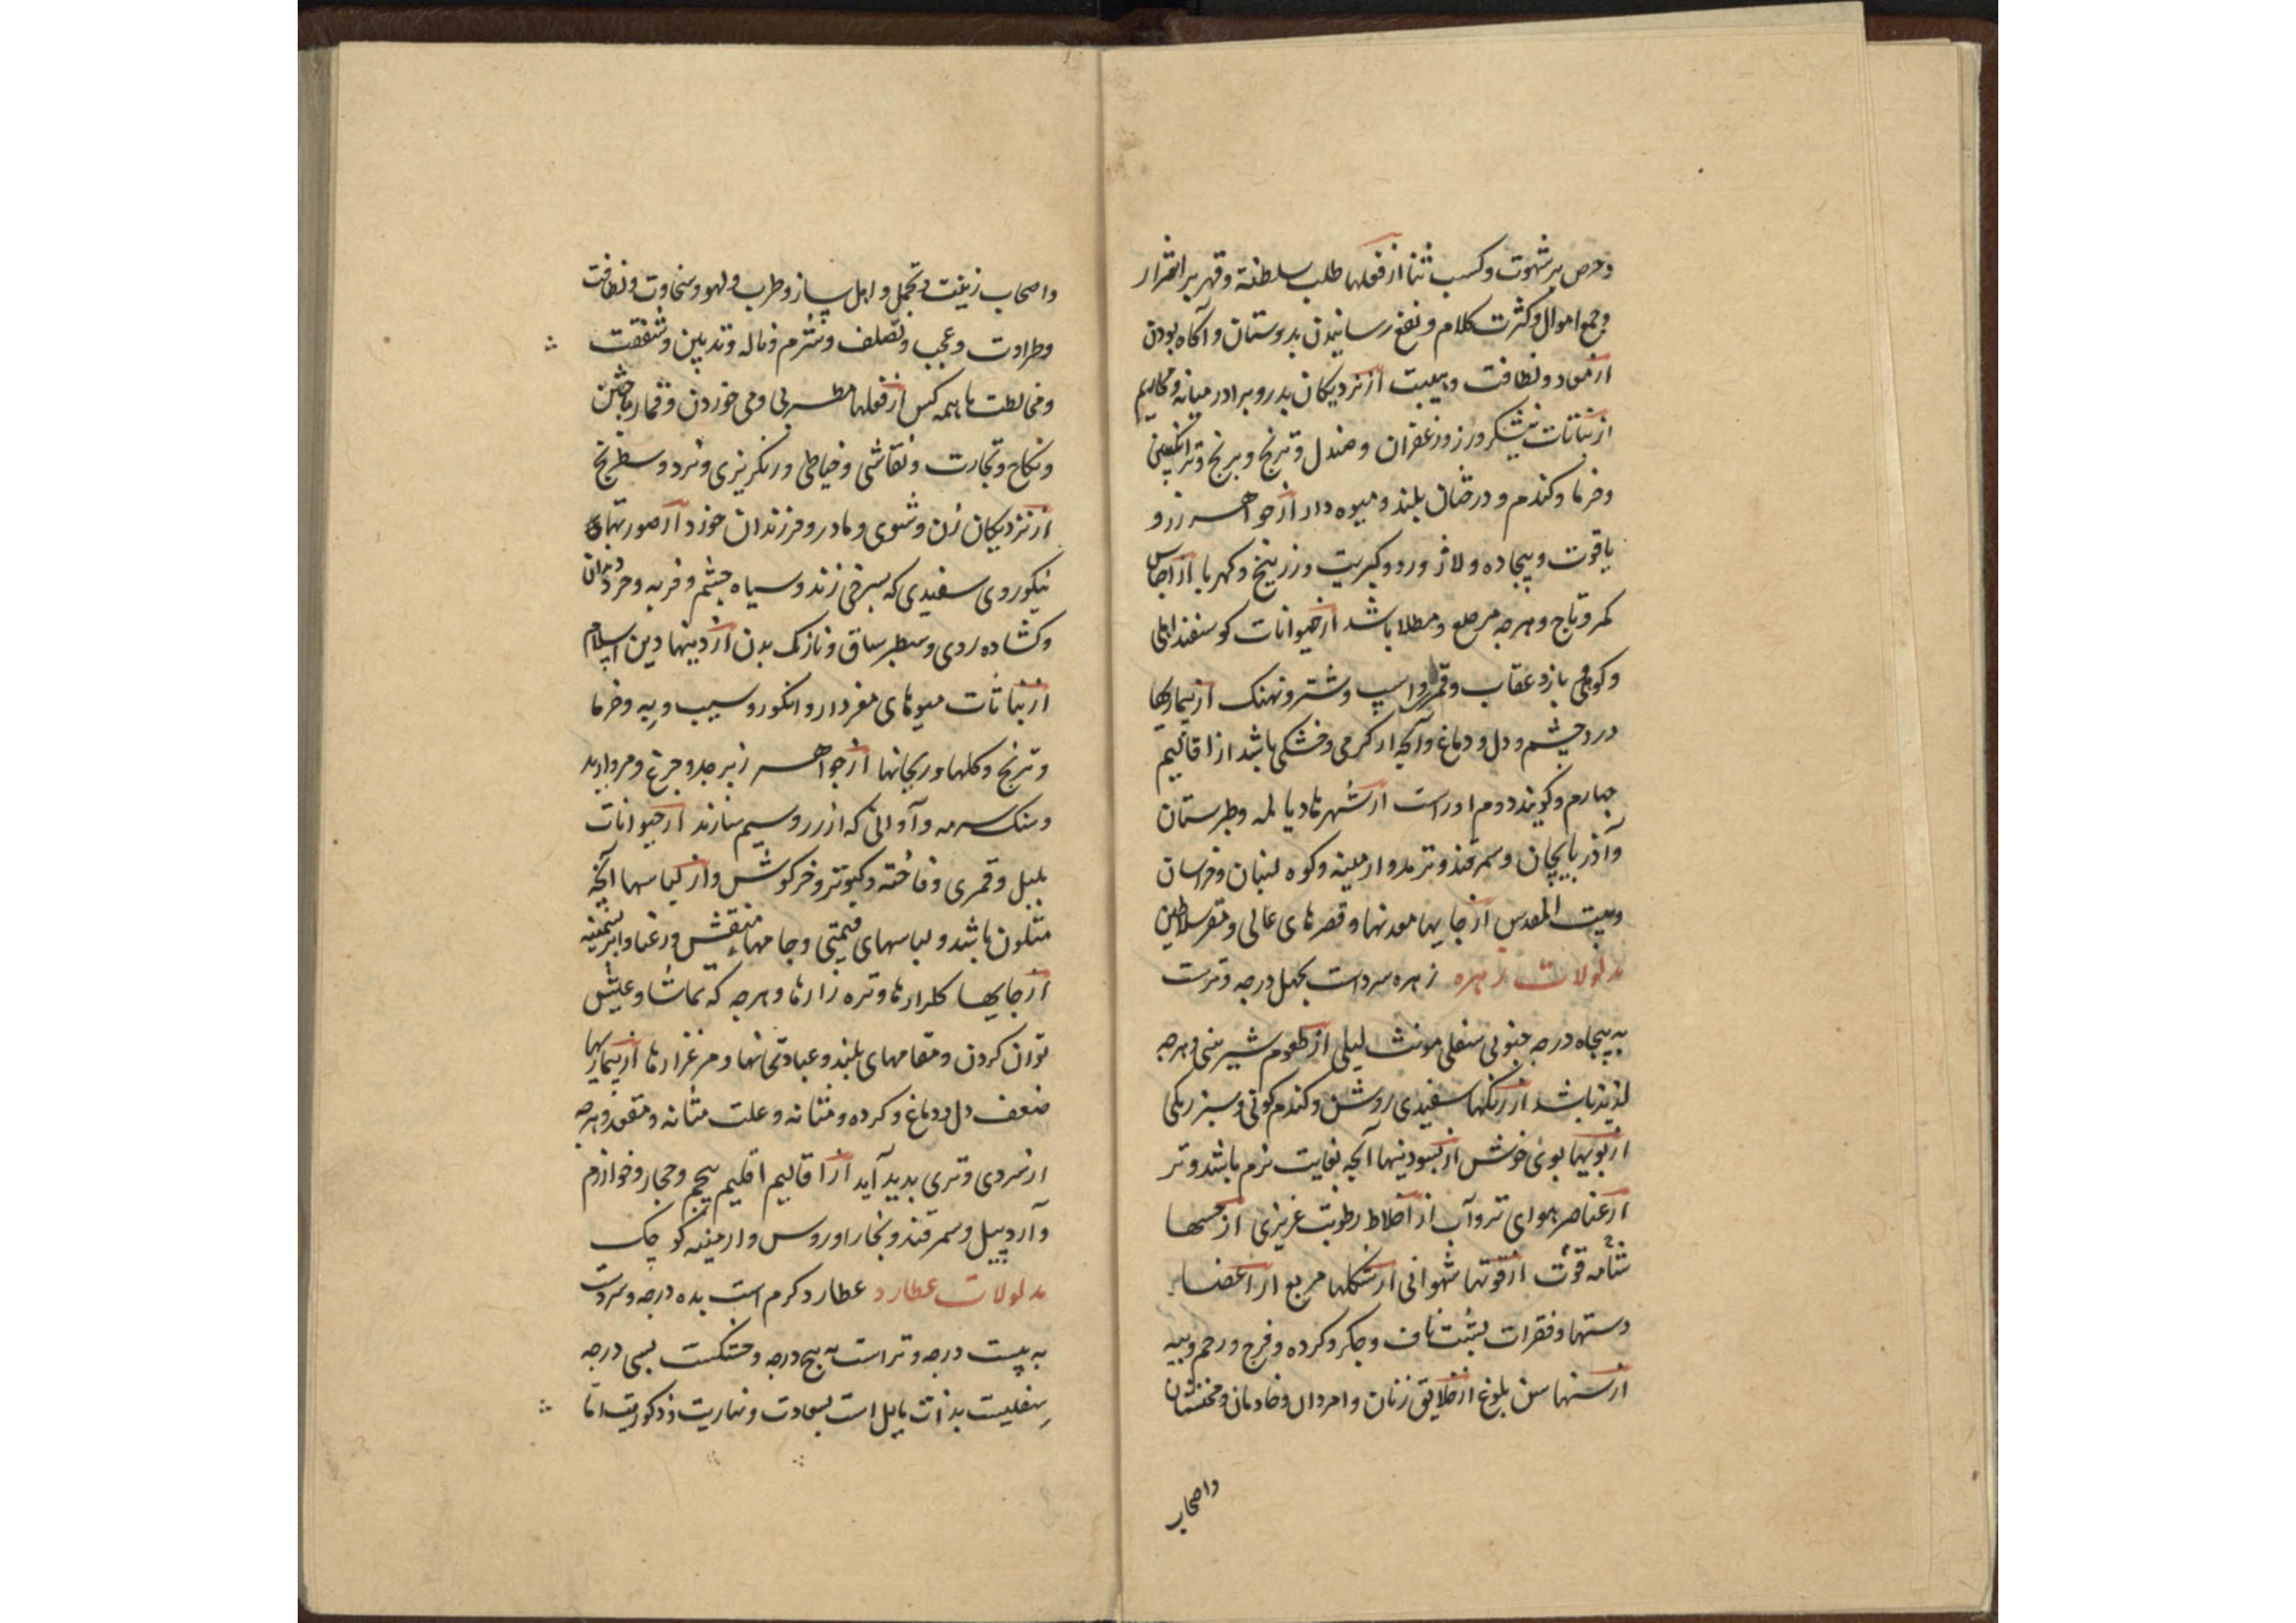 وحرص بر شهوت و کسب ثنا از فعلها طلب سلطنة وقهر بر اقران
وجمع اموال وکثرت کلام و نفع رسانیدن بدوستان و آکاه بودن
از معاد و نظافت و هیبت از نزدیکان پدر و برادر میانه و محاریم
از نباتات نیشکر و رز و زعفران و صندل و ترنج و برنج و ترانکبین
وخرما وکندم و درختان بلند و میوه دار از جواهر زر و
یاقوت و بیجاده و لاژورد و کبریت و زرنیخ و کهربا از اجناس
کمر و تاج و هرجه مرصع و مطلا باشد از حیوانات کوسفند اهلی
وکوهی باز و عقاب و قمری و اسپ و شتر و نهنک از بیماریها
درد چشم و دل و دماغ و آنچه از کرمی و خشکی باشد از اقالیم
جهارم و کویند دوم اوراست از شهرها دیالمه وطبرستان
و آذربایجان و سمرقند و ترمد و ارمینه و کوه لبنان و خراسان
وبیت المقدس از جایها معدنها و قصرهای عالی و مقر سلاطین
مدلولات زهره زهره سرداست بجهل درجه و ترست
به پنجاه درجه جنوبی سفلی مونث لیلی از طعوم شیرینی وهرجه
لذیذ باشد از رنکها سفیدی روشن و کندم کونی و سبز رنکی
از بویها بوی خوش از بسودنیها آنچه بغایت نرم باشد و تر
از عناصر هوای تر و آب از اخلاط رطوبت غریزی از حسها
شامه قوت از قوتها شهوانی از شکلها مربع از اعضا
دستها و فقرات پشت ناف و جکر و کرده و فرج و رحم و پیه
از سنها سن بلوغ از خلایق زنان و امردان وخادمان و مخنثان
واصحاب
واصحاب زینت و تجمل و اهل ساز و طرب و لهو و سخاوت و نظافت
وطراوت و عجب و تصلف و شرم و ناله و تدین و شفقت
ومخالطت با همه کس از فعلها مطربی و می خوردن و قمار باختن
ونکاح و تجارت و نقاشی و خیاطی و رنکریزی و نرد و سطرنج
از نزدیکان زن و شوی و مادر و فرزندان خورد از صورتها
نیکوروی سفیدی که بسرخی زند و سیاه چشم و فربه وخرد دندان
وکشاده روی و سطبر ساق و نازک بدن از دینها دین اسلام
از نباتات میوهای مغزدار و انکور و سیب و به وخرما
و ترنج وکلها و ریحانها از جواهر زبرجد و جزع و مروارید
وسنک سرمه و آوانی که از زر و سیم سازند از حیوانات
بلبل و قمری و فاخته و کبوتر و خرکوش و از لباسها آنچه
متلون باشد و لباسهای قیمتی وجامهاء منقش و رعنا و ابریشمینه
از جایها کلزارها و تره زارها وهرجه که تماشا وعیش
توان کردن و مقامهای بلند و عبادتخانها و مرغزارها از بیماریها
ضعف دل و دماغ و کرده و مثانه و علت مثانه و مقعد وهرجه
از سردی و تری بدید آید از اقالیم اقلیم پنجم و حجاز و خوارزم
و آردبیل و سمرقند و بخارا و روس و ارمنیه کوچک
مدلولات عطارد عطارد کرم است بده درجه و سردست
به بیست درجه و تراست به پنج درجه و خشکست بسی درجه
سفلیست بذات مایل است بسعادت و نهاریت و ذکوریت اما